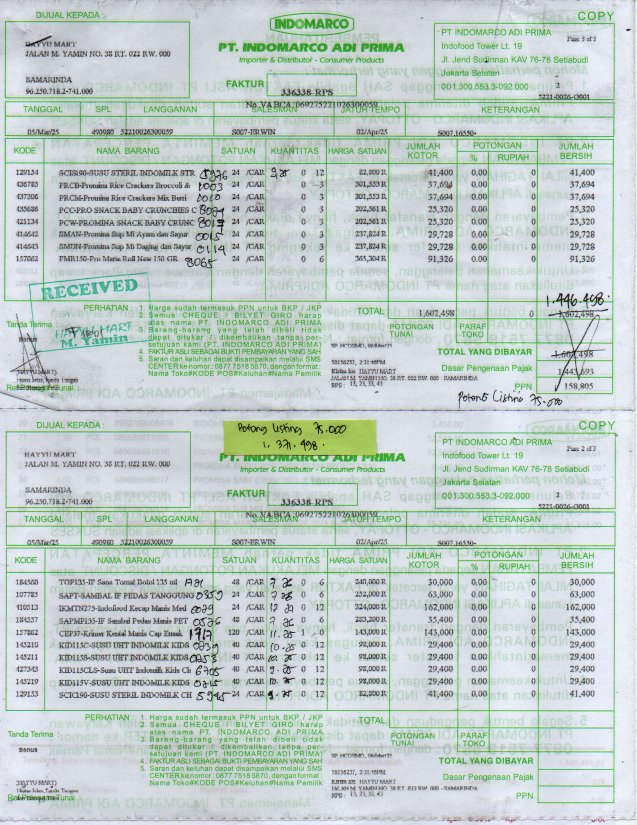 DIJUAL KEPADA :
INDOMARCO
COPY
HAYYU MART
JALAN M. YAMIN NO. 38 RT. 022 RW. 000
PT. INDOMARCO ADI PRIMA
Importer & Distributor - Consumer Products
PT INDOMARCO ADI PRIMA
Indofood Tower Lt. 19
Jl. Jend Sudirman KAV 76-78 Setiabudi
Jakarta Selatan
001.300.553.3-092.000
Page 3 of 3
2
5221-0026-G001
SAMARINDA
96.250.718.2-741.000
FAKTUR
336338-RPS
No. VA BCA :0692752210263000059
TANGGAL SPL LANGGANAN SALESMAN JATUH TEMPO KETERANGAN
05/Mar/25 490980 52210026300059 S007-ERWIN 02/Apr/25 S007,16550-
KODE NAMA BARANG SATUAN KUANTITAS HARGA SATUAN JUMLAH KOTOR POTONGAN % RUPIAH JUMLAH BERSIH
129154 SCIS190-SUSU STERIL INDOMILK STR 24 /CAR 0 12 82,800 R 41,400 0.00 0 41,400
436785 PRCB-Promina Rice Crackers Broccoli & 0003 24 /CAR 0 3 301,553 R 37,694 0.00 0 37,694
437306 PRCM-Promina Rice Crackers Mix Berri 0010 24 /CAR 0 3 301,553 R 37,694 0.00 0 37,694
435686 PCC-PRO SNACK BABY CRUNCHIES C 24 /CAR 0 3 202,561 R 25,320 0.00 0 25,320
421134 PCW-PROMINA SNACK BABY CRUNC 24 /CAR 0 3 202,561 R 25,320 0.00 0 25,320
414642 SMAN-Promina Sup Mi Ayam dan Sayur 0015 24 /CAR 0 3 237,824 R 29,728 0.00 0 29,728
414643 SMDN-Promina Sup Mi Daging dan Sayur 0114 24 /CAR 0 3 237,824 R 29,728 0.00 0 29,728
157062 FMR150-Pro Marie Roll New 150 GR 8065 24 /CAR 0 6 365,304 R 91,326 0.00 0 91,326
RECEIVED
M. Yamin
Tanda Terima
Bonus
(HAYYU MART)
Nama Jelas, Tanda Tangan
PERHATIAN : 1. Harga sudah termasuk PPN untuk BKP / JKP
2. Semua CHEQUE / BILYET GIRO harap
atas nama PT. INDOMARCO ADI PRIMA
3. Barang-barang yang telah dibeli tidak
dapat ditukar / dikembalikan tanpa per-
setujuan kami (PT. INDOMARCO ADI PRIMA)
4. FAKTUR ASLI SEBAGAI BUKTI PEMBAYARAN YANG SAH
5. Saran dan keluhan dapat disampaikan melalui SMS
CENTER ke nomor : 0877 7518 5870, dengan format :
Nama Toko#KODE POS#Keluhan#Nama Pemilik
1.446.498.
TOTAL 1,602,498 1,602,498
POTONGAN TUNAI PARAF TOKO
TOTAL YANG DIBAYAR 1,602,498
Dasar Pengenaan Pajak 1,443,693
PPN 158,805
50156257, 2:31:46PM
Kirim ke: HAYYU MART
JALAN M. YAMIN NO. 38 RT. 022 RW. 000 - SAMARINDA
RPS : 13, 23, 33, 43
Potong Listing 75.000
DIJUAL KEPADA :
Potong Listing 75.000
1.371.498.
COPY
HAYYU MART
JALAN M. YAMIN NO. 38 RT. 022 RW. 000
PT. INDOMARCO ADI PRIMA
Importer & Distributor - Consumer Products
PT INDOMARCO ADI PRIMA
Indofood Tower Lt. 19
Jl. Jend Sudirman KAV 76-78 Setiabudi
Jakarta Selatan
001.300.553.3-092.000
Page 2 of 3
2
5221-0026-G001
SAMARINDA
96.250.718.2-741.000
FAKTUR
336338-RPS
No. VA BCA :0692752210263000059
TANGGAL SPL LANGGANAN SALESMAN JATUH TEMPO KETERANGAN
05/Mar/25 490980 52210026300059 S007-ERWIN 02/Apr/25 S007,16550-
KODE NAMA BARANG SATUAN KUANTITAS HARGA SATUAN JUMLAH KOTOR POTONGAN % RUPIAH JUMLAH BERSIH
184560 TOP135-IF Saos Tomat Botol 135 ml 48 /CAR 0 6 240,000 R 30,000 0.00 0 30,000
107785 SAPT-SAMBAL IF PEDAS TANGGUNG 0359 24 /CAR 0 6 252,000 R 63,000 0.00 0 63,000
110513 IKMTN275-Indofood Kecap Manis Med 24 /CAR 0 12 324,000 R 162,000 0.00 0 162,000
184557 SAPMF135-IF Sambal Pedas Manis PET 48 /CAR 0 6 283,200 R 35,400 0.00 0 35,400
157862 CEP37-Krimer Kental Manis Cap Enaak 1717 120 /CAR 1 0 143,000 R 143,000 0.00 0 143,000
145210 KIDI15C-SUSU UHT INDOMILK KIDS 40 /CAR 0 12 98,000 R 29,400 0.00 0 29,400
145211 KIDI115S-SUSU UHT INDOMILK KIDS 40 /CAR 0 12 98,000 R 29,400 0.00 0 29,400
427343 KIDI15CLS-Susu UHT Indomilk Kids Ch 6705 40 /CAR 0 12 98,000 R 29,400 0.00 0 29,400
145219 KIDI15V-SUSU UHT INDOMILK KIDS 40 /CAR 0 12 98,000 R 29,400 0.00 0 29,400
129153 SCIC190-SUSU STERIL INDOMILK CH 24 /CAR 0 12 82,800 R 41,400 0.00 0 41,400
Tanda Terima
Bonus
(HAYYU MART)
Nama Jelas, Tanda Tangan
PERHATIAN : 1. Harga sudah termasuk PPN untuk BKP / JKP
2. Semua CHEQUE / BILYET GIRO harap
atas nama PT. INDOMARCO ADI PRIMA
3. Barang-barang yang telah dibeli tidak
dapat ditukar / dikembalikan tanpa per-
setujuan kami (PT. INDOMARCO ADI PRIMA)
4. FAKTUR ASLI SEBAGAI BUKTI PEMBAYARAN YANG SAH
5. Saran dan keluhan dapat disampaikan melalui SMS
CENTER ke nomor : 0877 7518 5870, dengan format :
Nama Toko#KODE POS#Keluhan#Nama Pemilik
TOTAL
POTONGAN TUNAI PARAF TOKO
TOTAL YANG DIBAYAR
Dasar Pengenaan Pajak
PPN
50156257, 2:31:46PM
Kirim ke: HAYYU MART
JALAN M. YAMIN NO. 38 RT. 022 RW. 000 - SAMARINDA
RPS : 13, 23, 33, 43